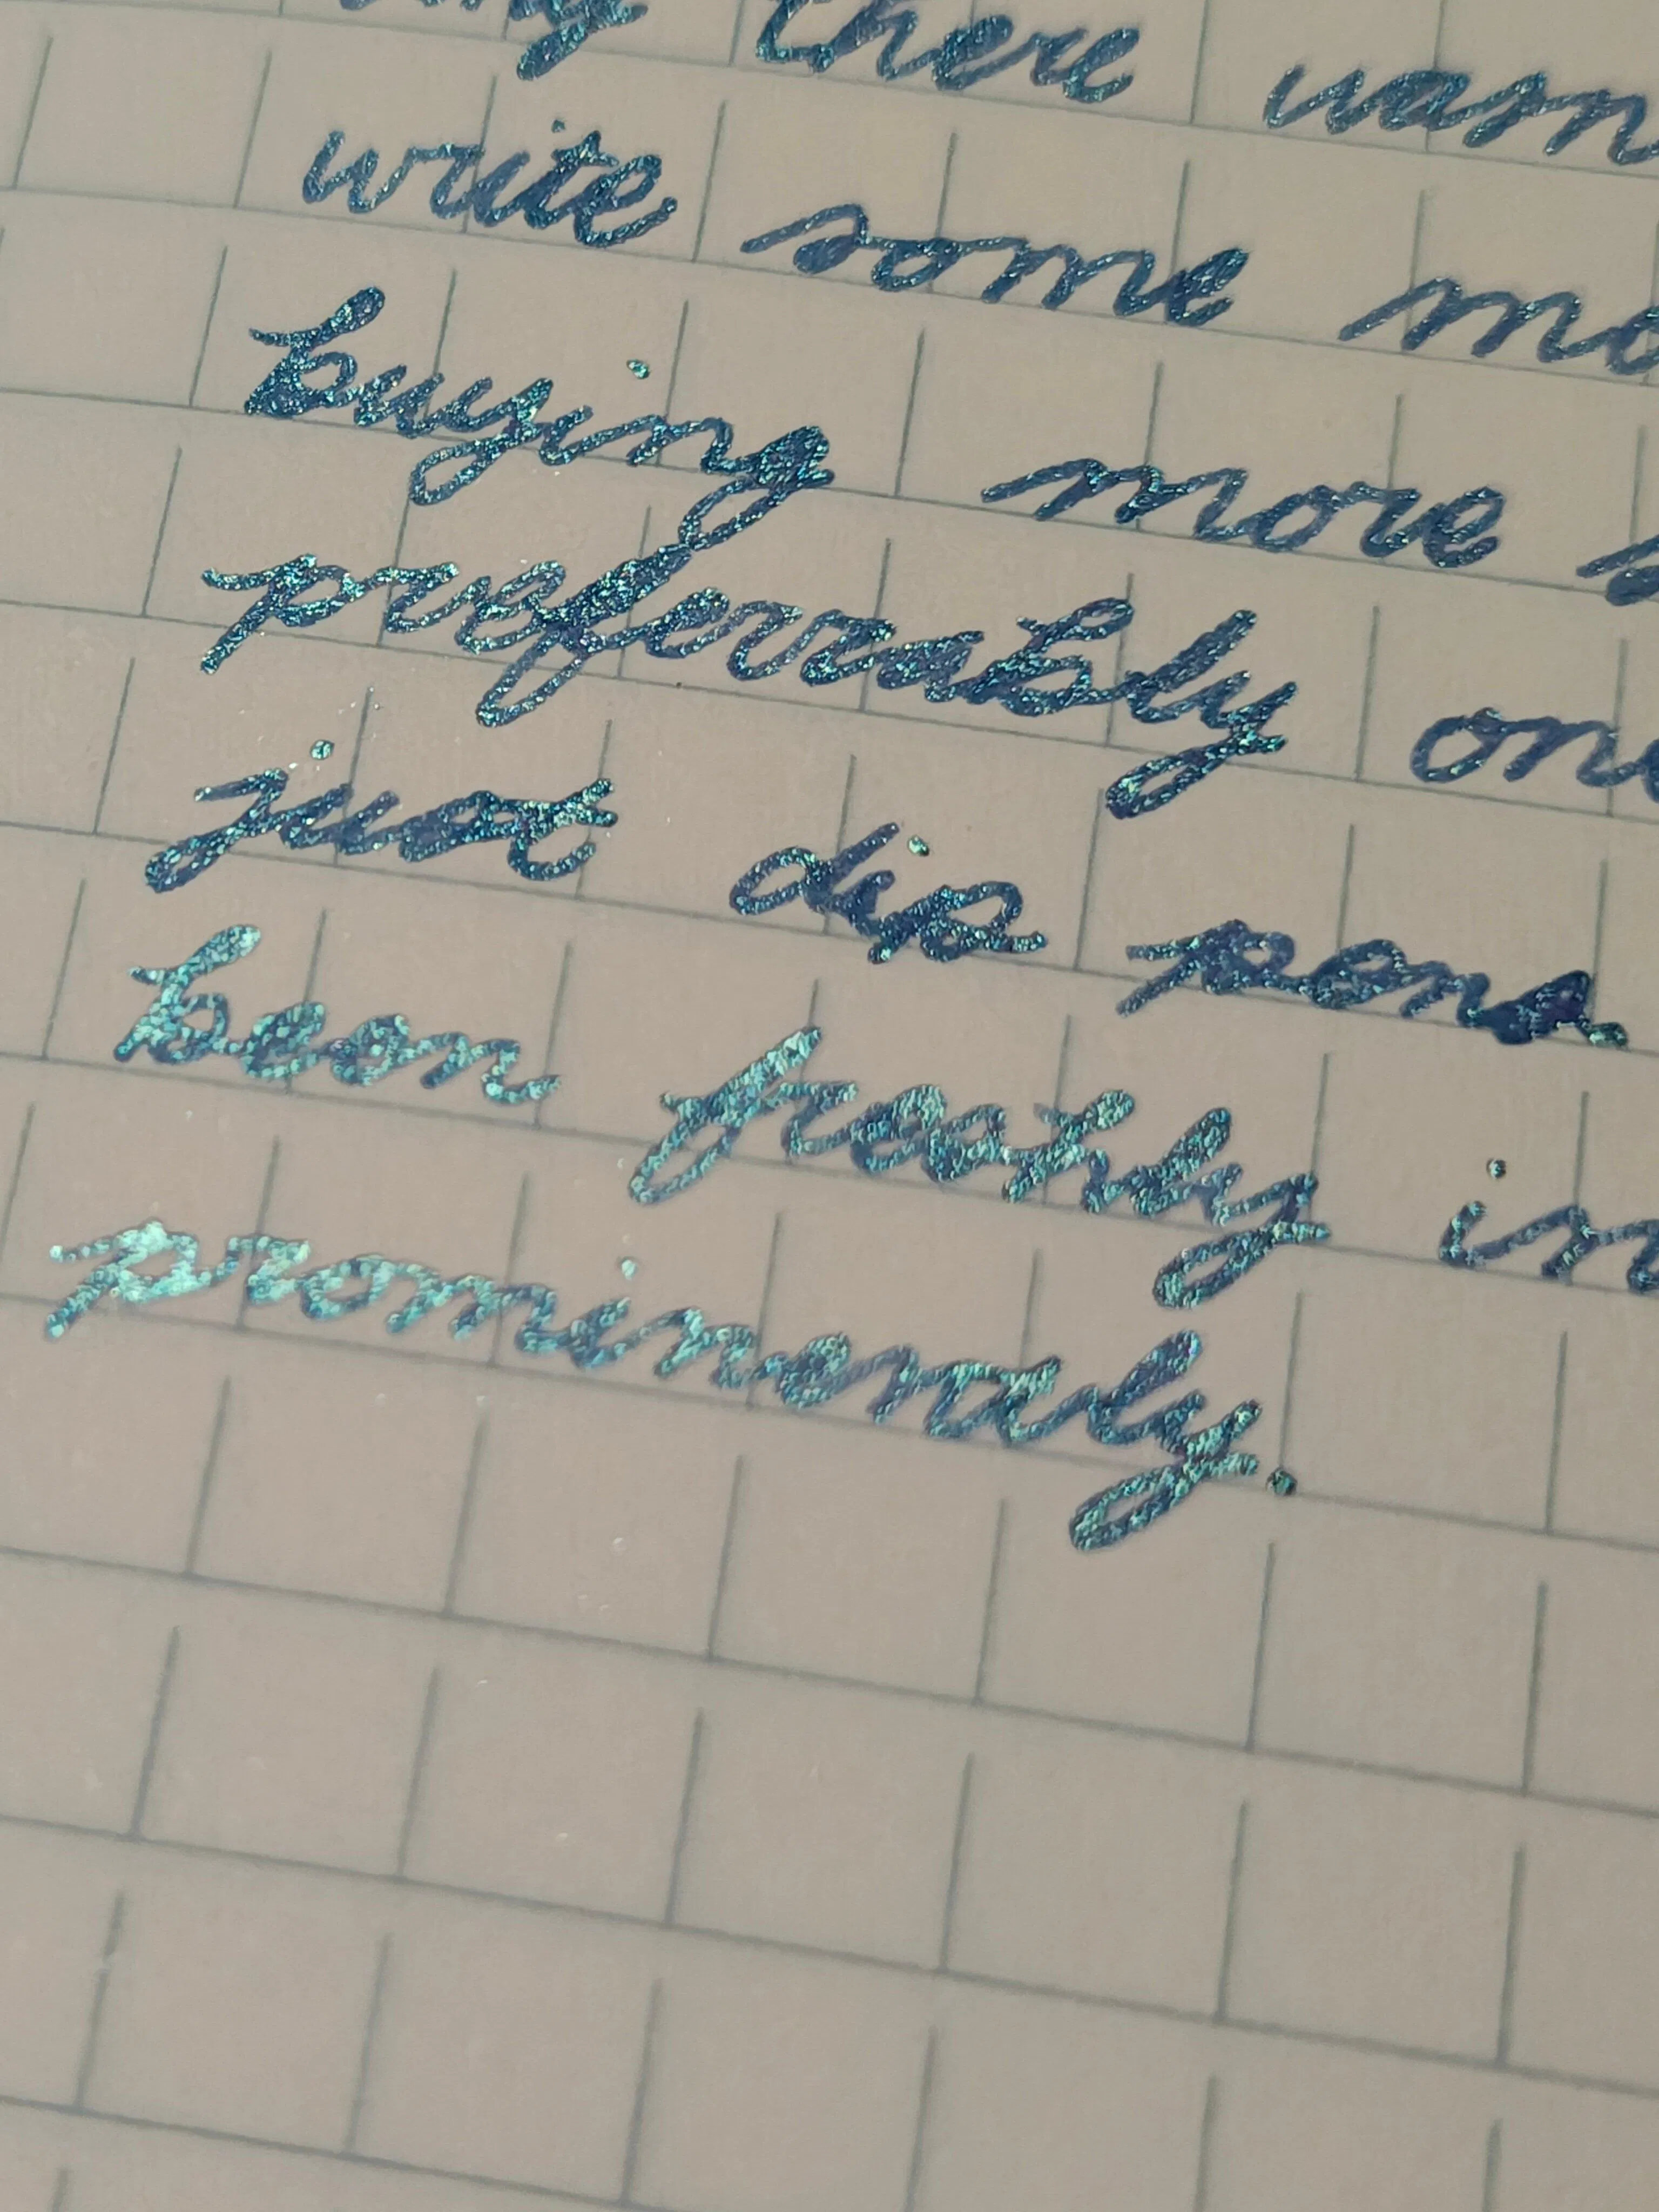 there
write some
buying more
preferrably
just dip pens
been freshly
prominently.